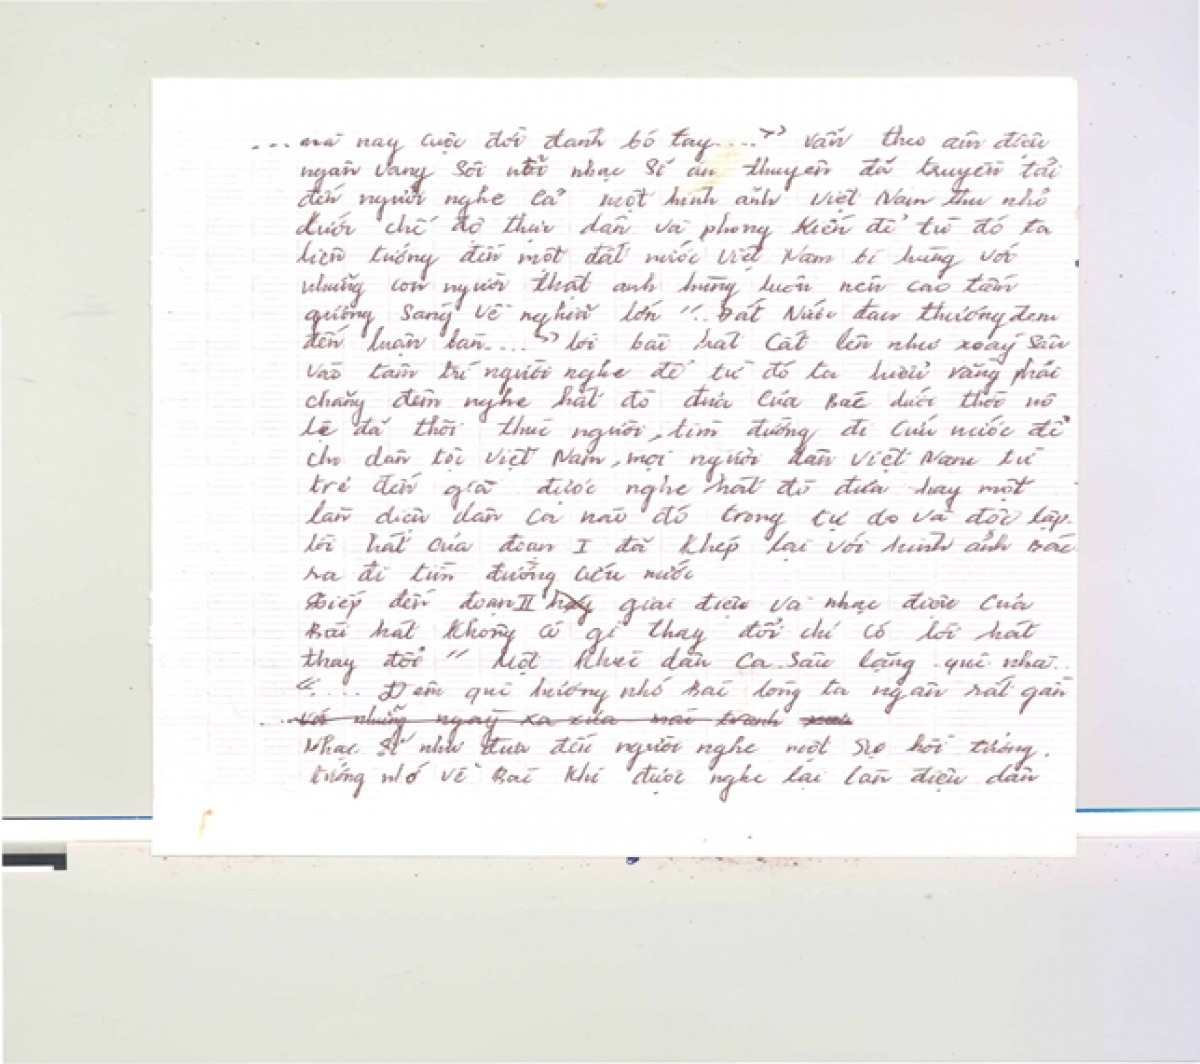 ... mà nay cuộc đời đành bó tay....” vẫn theo âm điệu
ngân vang sôi nổi nhạc sĩ an thuyên đã truyền tải
đến người nghe cả một hình ảnh Việt Nam thu nhỏ
dưới chế độ thực dân và phong kiến để từ đó ta
liên tưởng đến một đất nước Việt Nam bi hùng với
những con người thật anh hùng luôn nên cao tấm
gương sáng về nghĩa lớn “.. Đất Nước đau thương đem
đến luận bàn....” lời bài hát cất lên như xoáy sâu
vào tâm trí người nghe để từ đó ta hiểu rằng phải
chăng đêm nghe hát đò đưa của Bác dưới thời nô
lệ đã thôi thúc người, tìm đường đi cứu nước để
cho dân tộc Việt Nam, mọi người dân Việt Nam từ
trẻ đến già được nghe hát đò đưa hay một
làn điệu dân ca nào đó trong tự do và độc lập.
lời hát của đoạn I đã khép lại với hình ảnh Bác
ra đi tìm đường cứu nước
Tiếp đến đoạn II giai điệu và nhạc được của
Bài hát không có gì thay đổi chỉ có lời hát
thay đổi “ Một khúc dân ca sâu lặng quê nhà..
“.... Đêm quê hương nhớ Bác lòng ta ngân rất gần
... với những ngày xa xưa mái tranh
Nhạc sĩ như đưa đến người nghe một sự hồi tưởng.
tưởng nhớ về Bác khi được nghe lại làn điệu dân